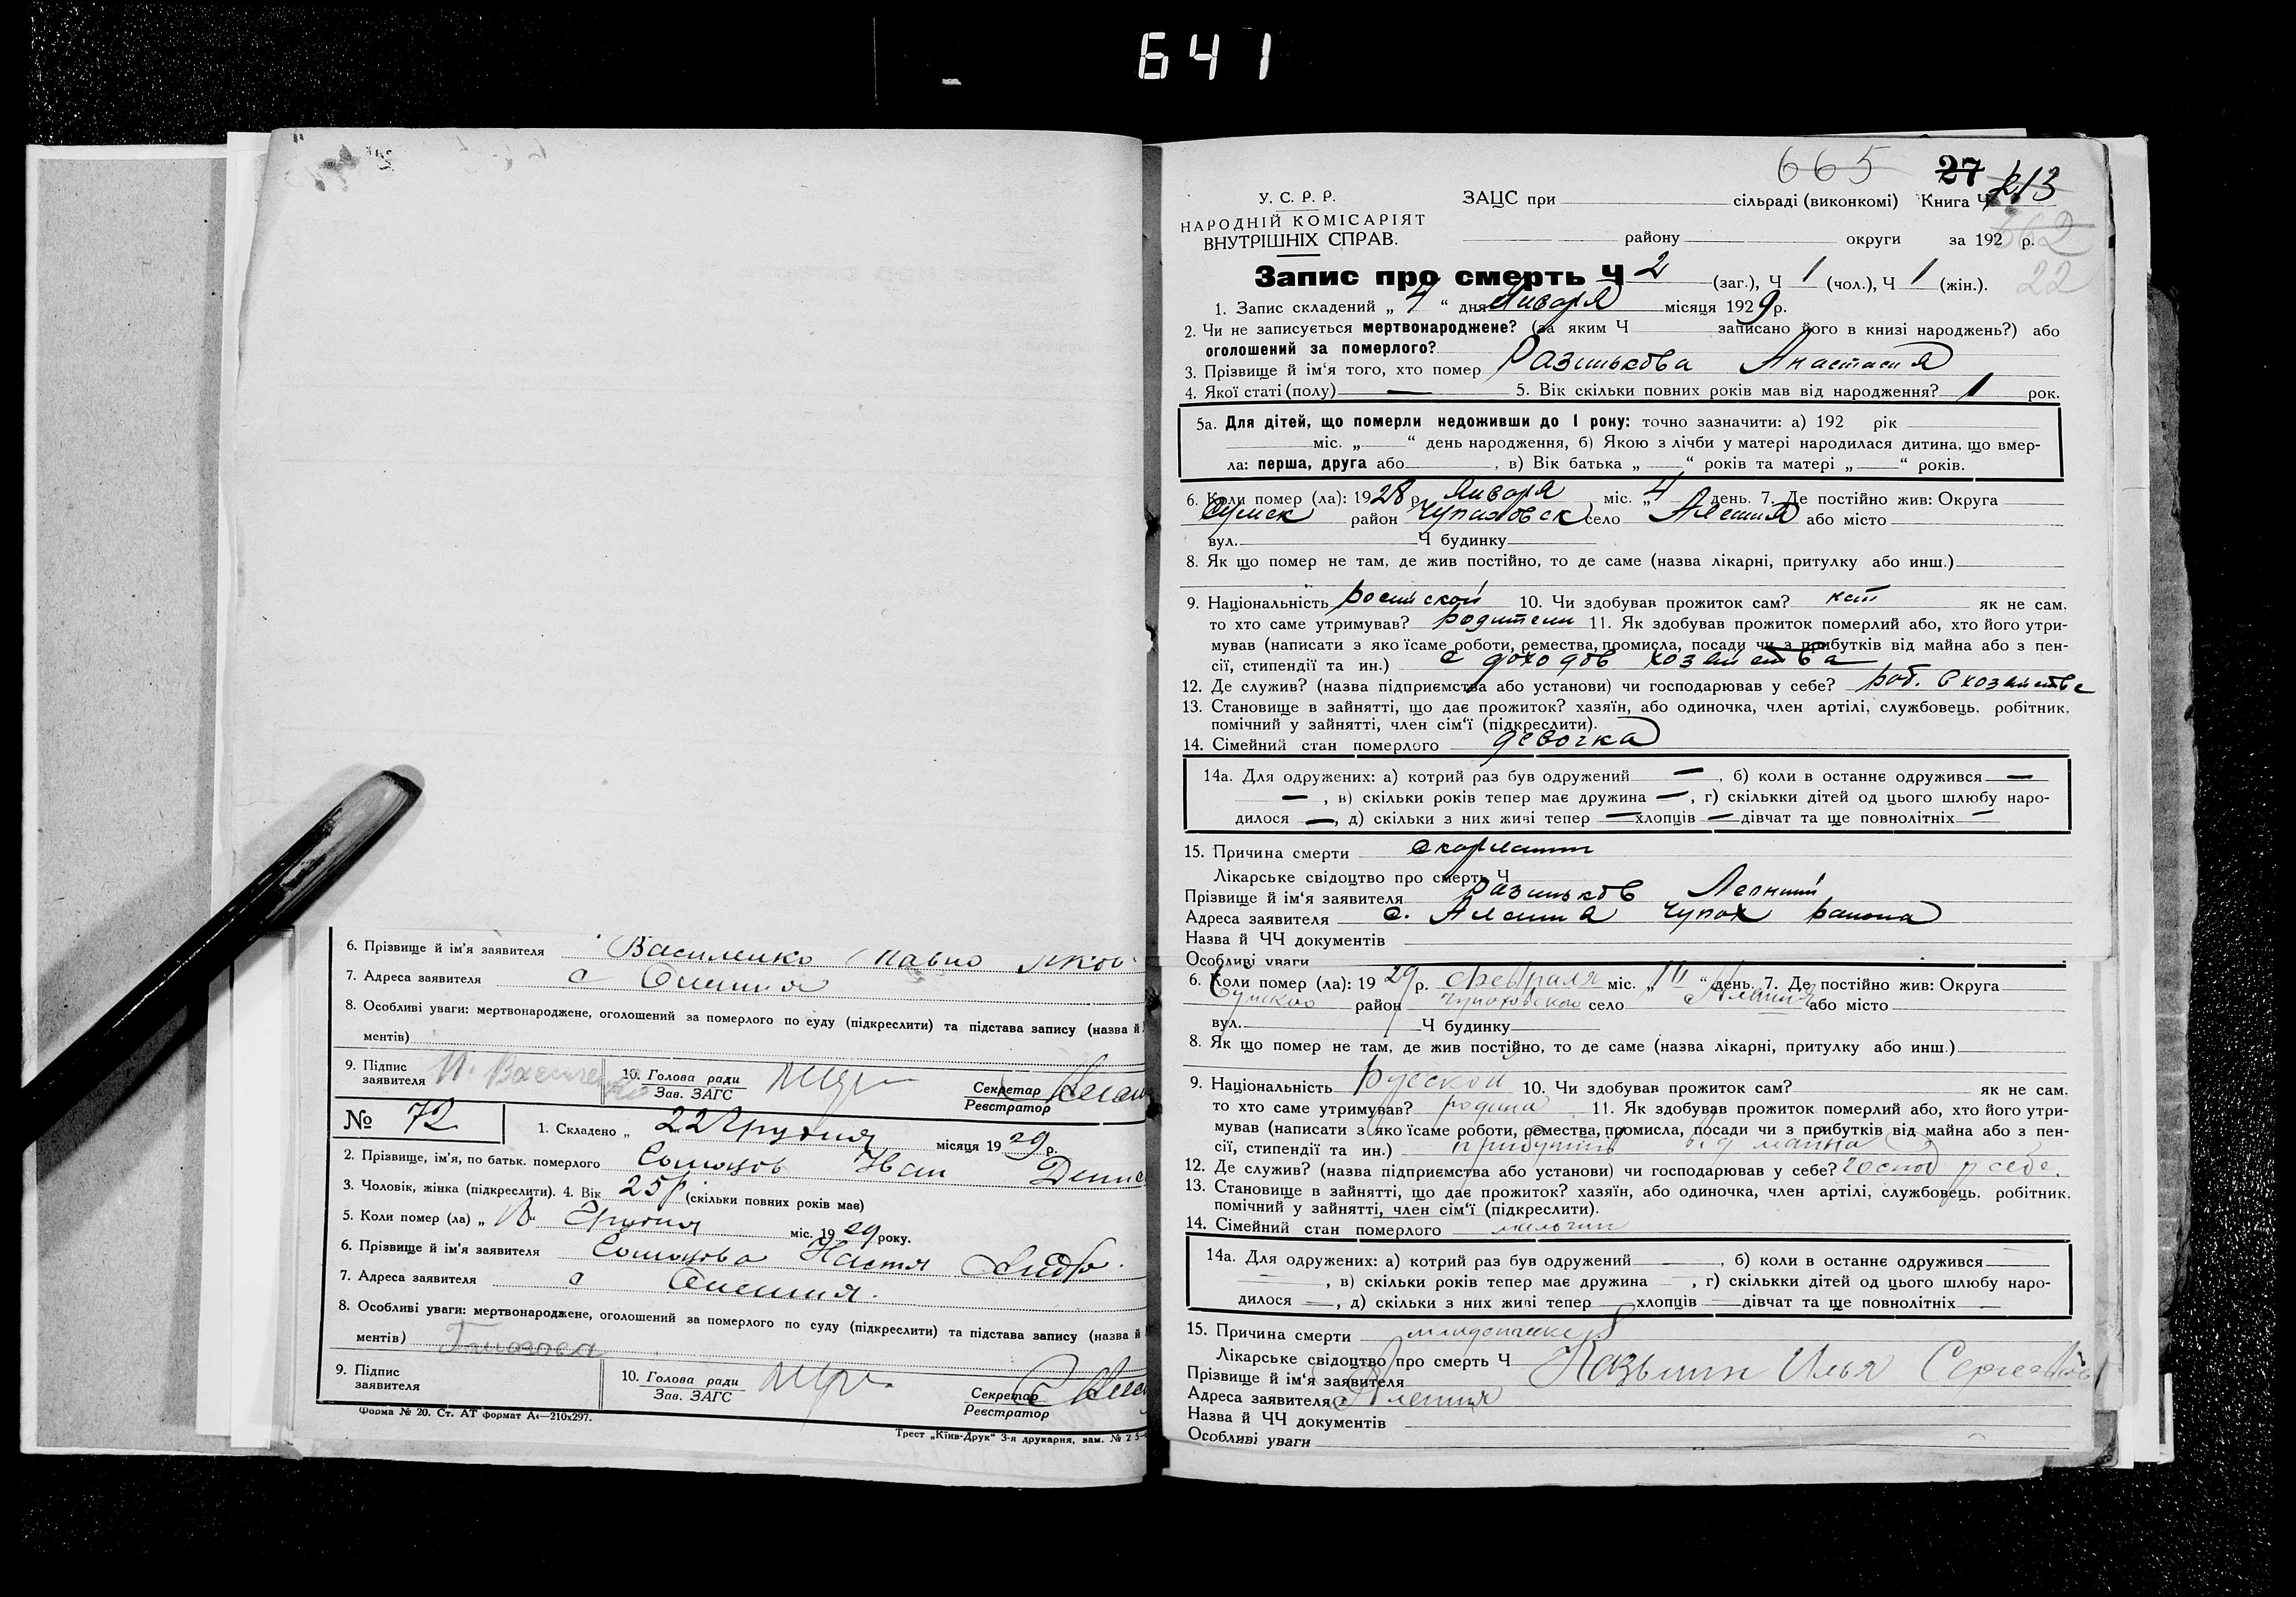 641
6. Прізвище й ім'я заявителя Василенко Павло Яков
7. Адреса заявителя с Олешня
8. Особливі уваги: мертвонароджене, оголошений за померлого по суду (підкреслити) та підстава запису (назва й
ментів)
9. Підпис заявителя 10. Голова ради Зав. ЗАГС Секретар Реєстратор
№ 72 1. Складено „ 22 Грудня місяця 1929 р.
2. Прізвище, ім'я, по батьк. померлого Иван
3. Чоловік, жінка (підкреслити). 4. Вік 25 р (скільки повних років має)
5. Коли помер (ла) „ “ Грудня міс. 1929 року.
6. Прізвище й ім'я заявителя Настя
7. Адреса заявителя с Олешня.
8. Особливі уваги: мертвонароджене, оголошений за померлого по суду (підкреслити) та підстава запису (назва й
ментів)
9. Підпис заявителя 10. Голова ради Зав. ЗАГС Секретар Реєстратор
Форма № 20. Ст. АТ формат А4—210х297.
Трест „Київ-Друк“ 3-я друкарня, зам. № 25
665 27 213
У. С. Р. Р. ЗАЦС при сільраді (виконкомі) Книга Ч
НАРОДНІЙ КОМІСАРІЯТ
ВНУТРІШНІХ СПРАВ. району округи за 192 р.
362
22
Запис про смерть Ч 2 (заг.), Ч 1 (чол.), Ч 1 (жін.).
1. Запис складений „ 4 “ дня Января місяця 1929 р.
2. Чи не записується мертвонароджене? (за яким Ч записано його в книзі народжень?) або
оголошений за померлого?
3. Прізвище й ім'я того, хто помер Разинькова Анастасия
4. Якої статі (полу) — 5. Вік скільки повних років мав від народження? 1 рок.
5а. Для дітей, що померли недоживши до 1 року: точно зазначити: а) 192 рік
міс. „ “ день народження, б) Якою з лічби у матері народилася дитина, що вмер-
ла: перша, друга або , в) Вік батька „ “ років та матері „ “ років.
6. Коли помер (ла): 1928 р. Января міс. „4 день. 7. Де постійно жив: Округа
Сумск район Чупаховск село Алешня або місто
вул. Ч будинку
8. Як що помер не там, де жив постійно, то де саме (назва лікарні, притулку або инш.)
9. Національність росийской 10. Чи здобував прожиток сам? нет як не сам.
то хто саме утримував? родители 11. Як здобував прожиток померлий або, хто його утри-
мував (написати з яко їсаме роботи, ремества, промисла, посади чи з прибутків від майна або з пен-
сії, стипендії та ин.) с доходов хозяйства
12. Де служив? (назва підприємства або установи) чи господарював у себе? раб. в хозяйстве
13. Становище в зайнятті, що дає прожиток? хазяїн, або одиночка, член артілі, службовець, робітник,
помічний у зайнятті, член сім'ї (підкреслити).
14. Сімейний стан померлого девочка
14а. Для одружених: а) котрий раз був одружений — , б) коли в останнє одружився —
— , в) скільки років тепер має дружина — , г) скількки дітей од цього шлюбу наро-
дилося — , д) скільки з них живі тепер — хлопців — дівчат та ще повнолітніх —
15. Причина смерти скарлатин
Лікарське свідоцтво про смерть Ч
Прізвище й ім'я заявителя Разиньков
Адреса заявителя с. Алешня Чупах района
Назва й ЧЧ документів
Особливі уваги
6. Коли помер (ла): 1929 р. февраля міс. „ “ день. 7. Де постійно жив: Округа
Сумского район Чупаховского село Алешня або місто
вул. Ч будинку
8. Як що помер не там, де жив постійно, то де саме (назва лікарні, притулку або инш.)
9. Національність русской 10. Чи здобував прожиток сам? як не сам.
то хто саме утримував? родина 11. Як здобував прожиток померлий або, хто його утри-
мував (написати з яко їсаме роботи, ремества, промисла, посади чи з прибутків від майна або з пен-
сії, стипендії та ин.) прибутків від майна
12. Де служив? (назва підприємства або установи) чи господарював у себе? господ у себе.
13. Становище в зайнятті, що дає прожиток? хазяїн, або одиночка, член артілі, службовець, робітник,
помічний у зайнятті, член сім'ї (підкреслити).
14. Сімейний стан померлого
14а. Для одружених: а) котрий раз був одружений , б) коли в останнє одружився
, в) скільки років тепер має дружина , г) скількки дітей од цього шлюбу наро-
дилося , д) скільки з них живі тепер хлопців дівчат та ще повнолітніх
15. Причина смерти
Лікарське свідоцтво про смерть Ч
Прізвище й ім'я заявителя Илья
Адреса заявителя с Алешня
Назва й ЧЧ документів
Особливі уваги